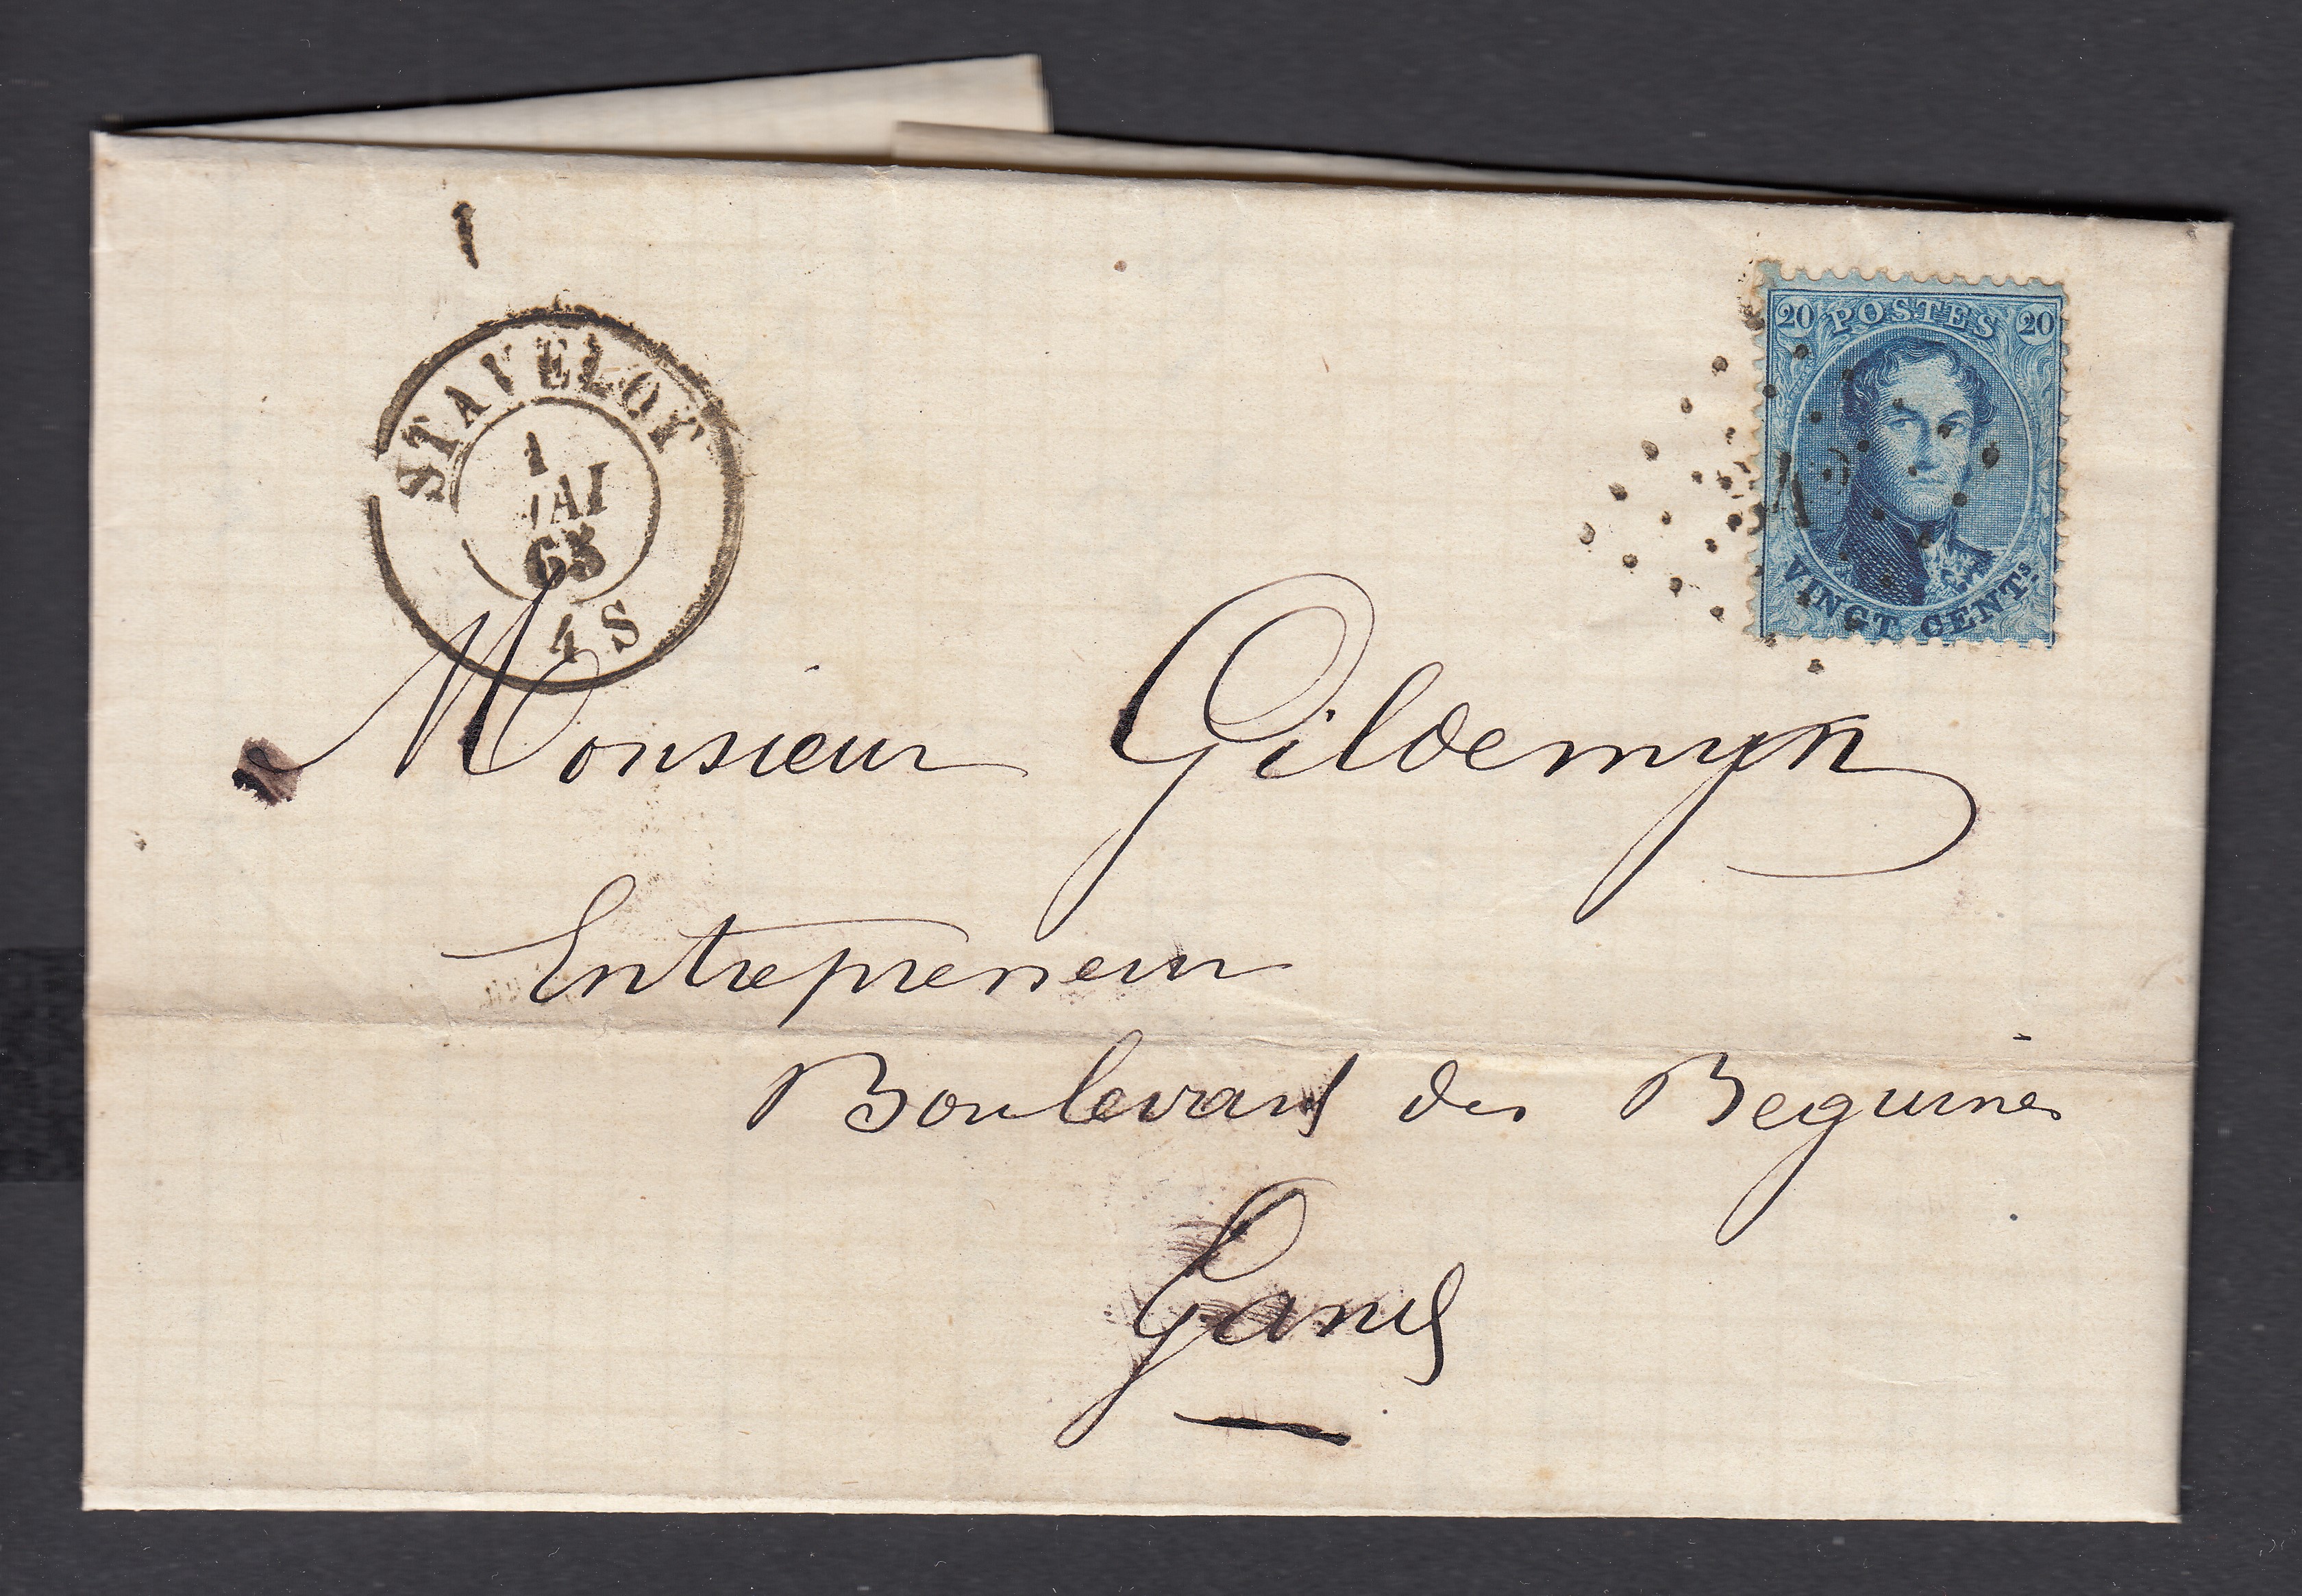 STAVELOT
1
MAI
65
4 S
20 POSTES 20
VINGT CENTS.
Monsieur Gildemyn
Entrepreneur
Boulevard des Beguines
Gand